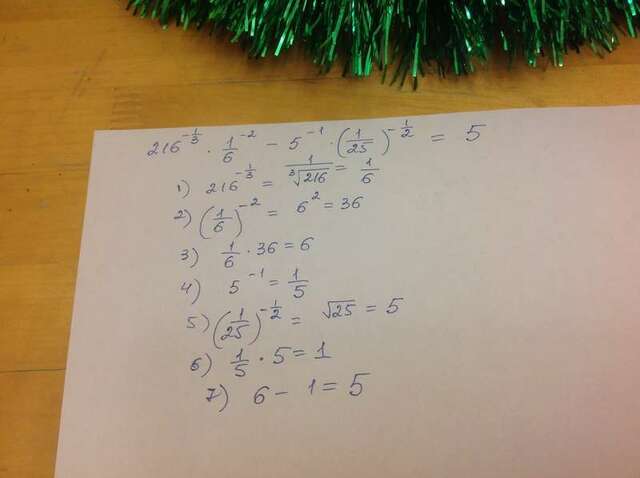 216^(-1/3) · 1/6^(-2) - 5^(-1) · (1/25)^(-1/2) = 5
1) 216^(-1/3) = 1/∛216 = 1/6
2) (1/6)^(-2) = 6^2 = 36
3) 1/6 · 36 = 6
4) 5^(-1) = 1/5
5) (1/25)^(-1/2) = √25 = 5
6) 1/5 · 5 = 1
7) 6 - 1 = 5